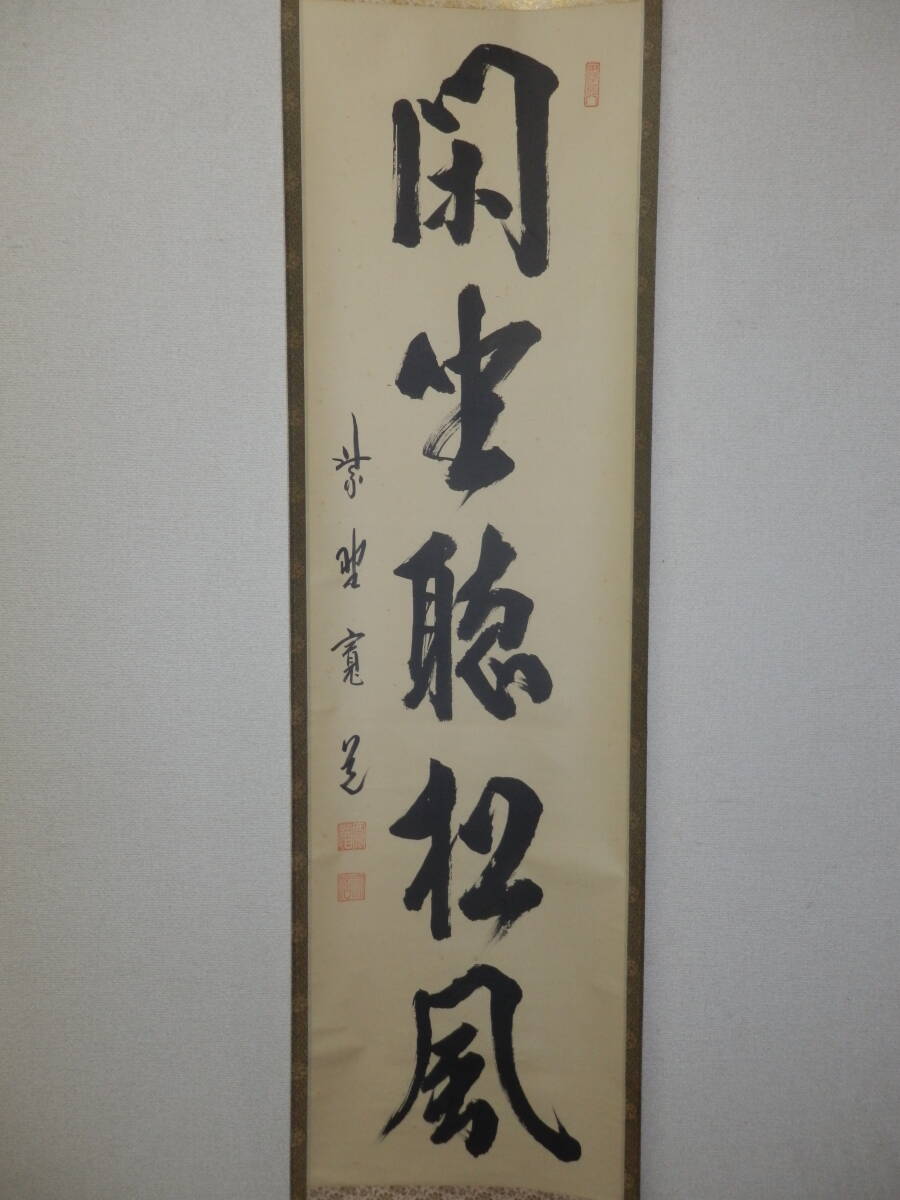 閑坐聴松風
紫野寛道